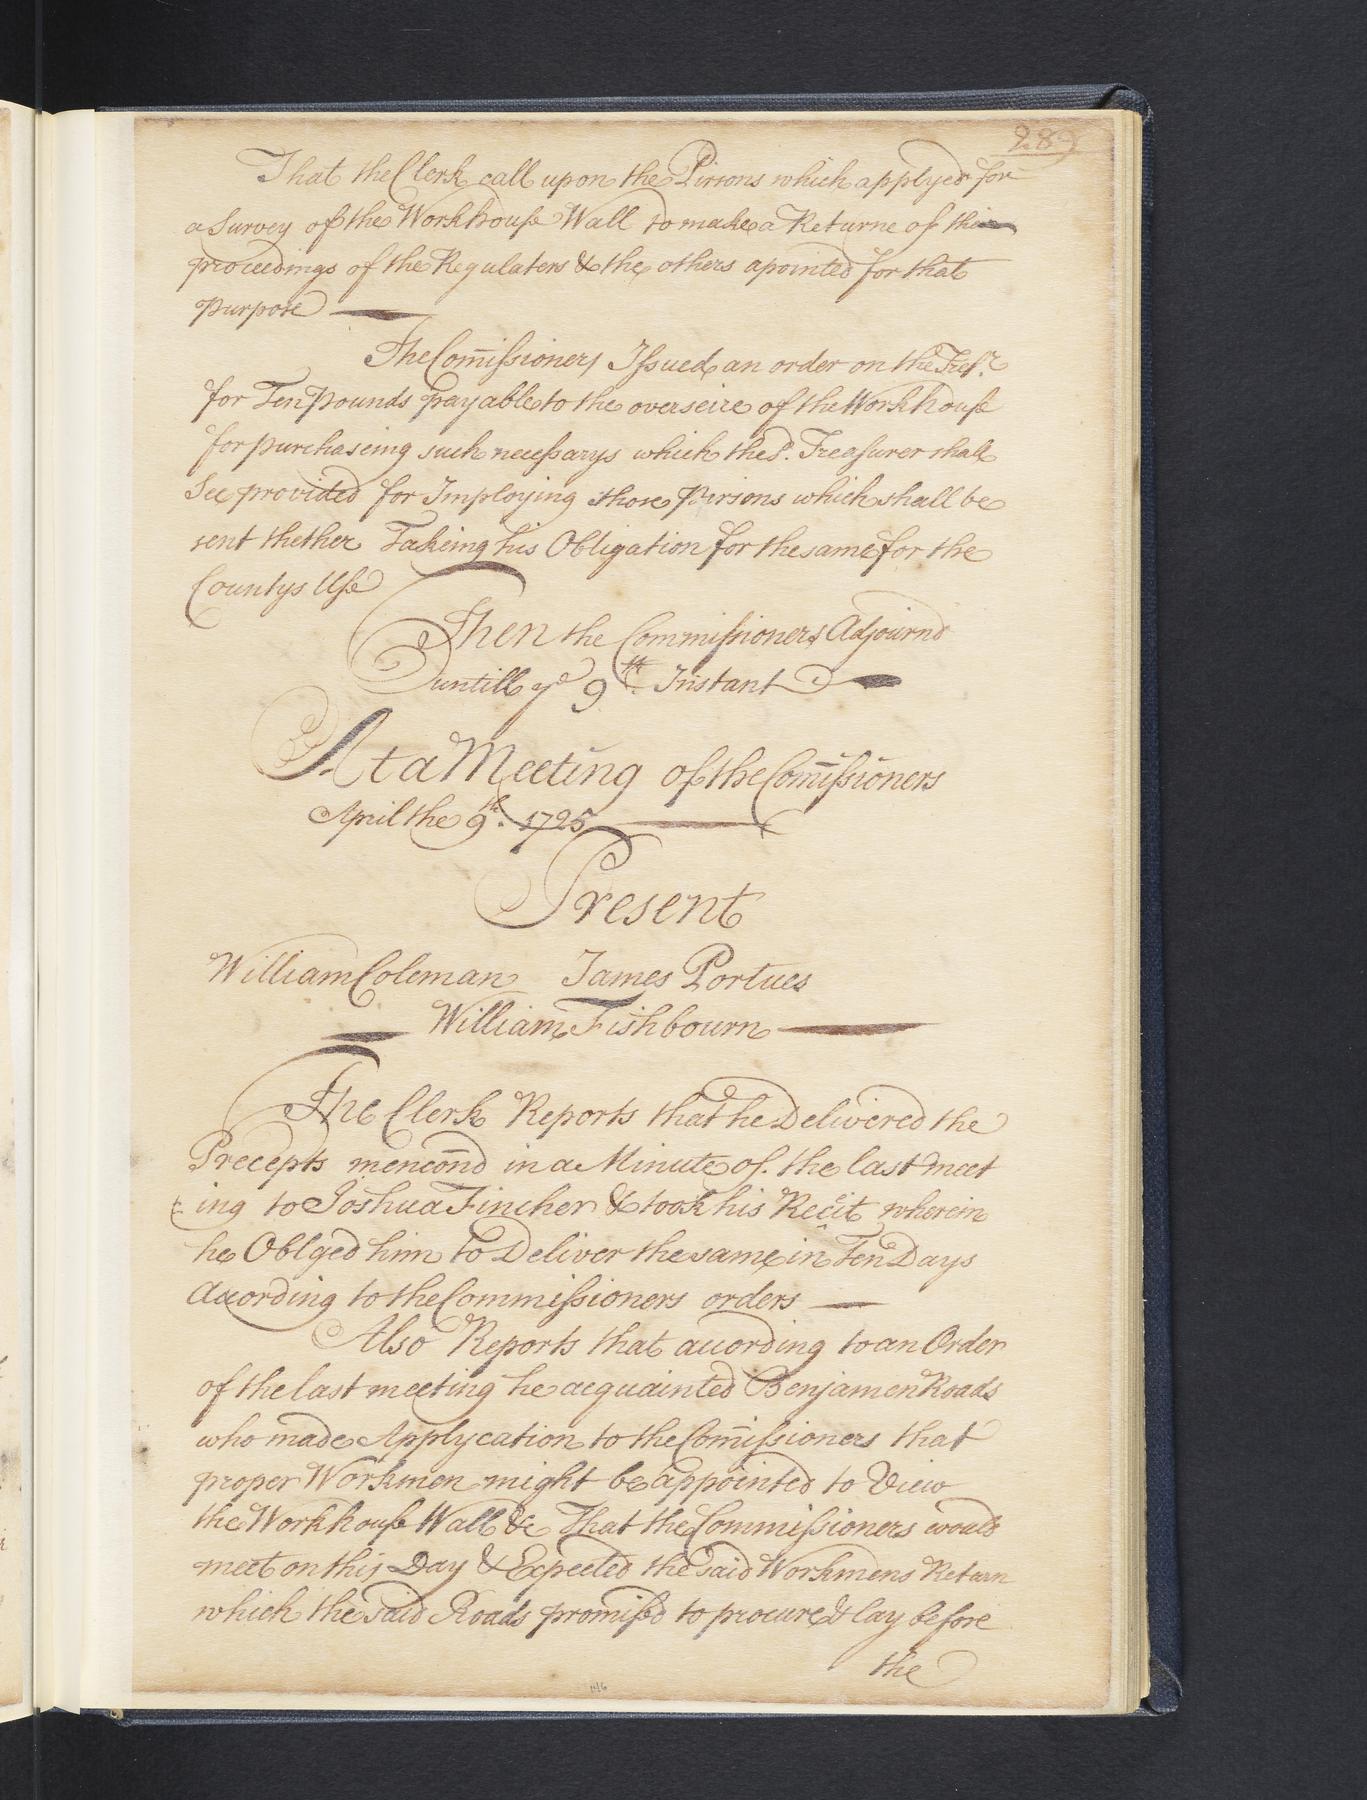 289
That the Clerk call upon the Pirsons which applyed for
a Survey of the Workhouse Wall to make a Returne of thier
proceedings of the Regulators & the others apointed for that
purpose
The Com̄issioners Issued an order on the Tresr.
for Ten Pounds payable to the overseire of the Workhouse
for purchaseing such necessarys which the sd. Treasurer shall
See provided for Imploying those Pirsons which shall be
sent thether Takeing his Obligation for the same for the
Countys Use
Then the Commissioners Adjournd
untill ye 9th. Instant
At a Meeting of the Com̄issioners
April the 9th. 1725
Present
William Coleman James Portues
William Fishbourn
The Clerk Reports that he Delivered the
Precepts mencōnd in a Minute of the last meet
ing to Joshua Fincher & took his Recit wherein
he Oblged him to Deliver the same in Ten Days
Acording to the Commissioners orders
Also Reports that acording to an Order
of the last meeting he acquainted Benjamen Roads
who made Applycation to the Com̄issioners that
proper Workmen might be appointed to View
the Workhouse Wall &c That the Commissioners would
meet on this Day & Expected the said Workmens Return
which the said Roads promised to procure & lay before
the
146